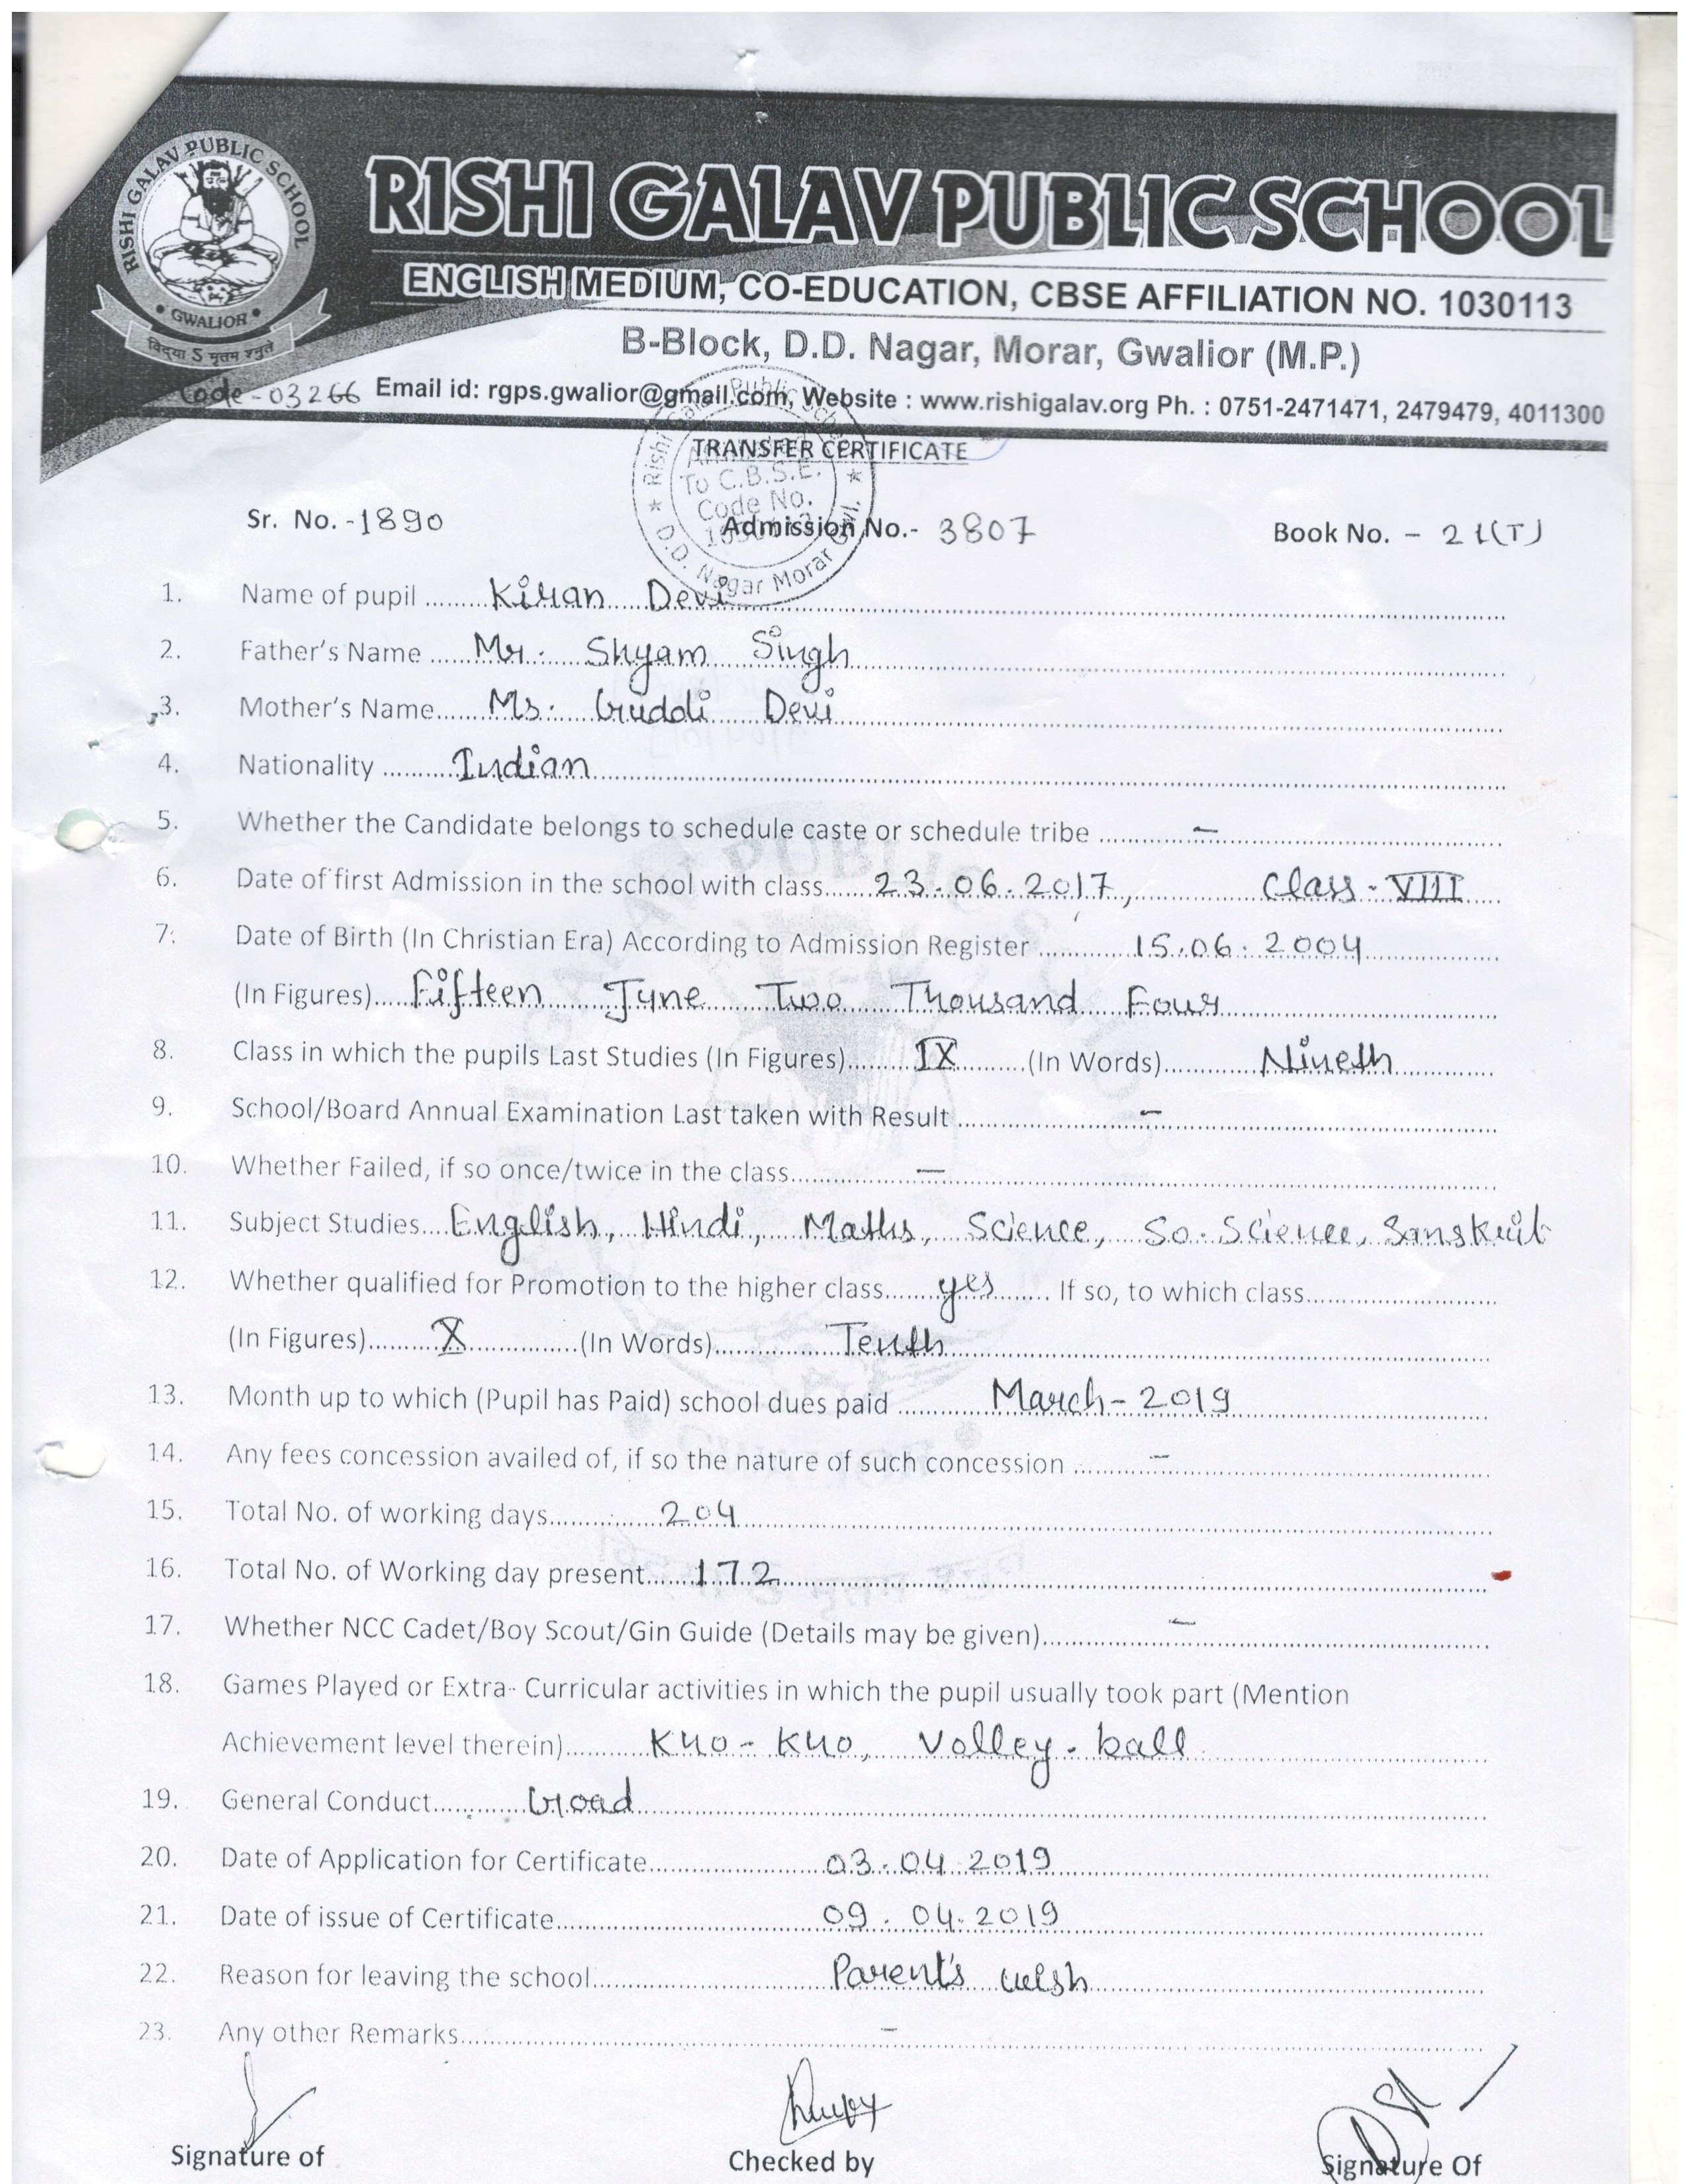 RISHI GALAV PUBLIC SCHOOL
GWALIOR
विद्या ऽ मृतम श्नुते
RISHI GALAV PUBLIC SCHOOL
ENGLISH MEDIUM, CO-EDUCATION, CBSE AFFILIATION NO. 1030113
B-Block, D.D. Nagar, Morar, Gwalior (M.P.)
Code - 03266 Email id: rgps.gwalior@gmail.com, Website : www.rishigalav.org Ph. : 0751-2471471, 2479479, 4011300
TRANSFER CERTIFICATE
To C.B.S.E.
Code No.
D.D. Nagar Morar
Sr. No. -1890 Admission No.- 3807 Book No. - 21(T)
1. Name of pupil ........Kiran Devi
2. Father's Name ......Mr. Shyam Singh
3. Mother's Name......Ms. Guddi Devi
4. Nationality ..........Indian
5. Whether the Candidate belongs to schedule caste or schedule tribe ............ -
6. Date of first Admission in the school with class......23.06.2017, Class - VIII
7. Date of Birth (In Christian Era) According to Admission Register ............ 15.06.2004
(In Figures).....Fifteen Jyne Two Thousand Four
8. Class in which the pupils Last Studies (In Figures).........IX..........(In Words)............Nineth
9. School/Board Annual Examination Last taken with Result ............ -
10. Whether Failed, if so once/twice in the class............ -
11. Subject Studies....English, Hindi, Maths, Science, So. Science, Sanskrit
12. Whether qualified for Promotion to the higher class.......yes........ If so, to which class............
(In Figures).........X............(In Words)............Tenth
13. Month up to which (Pupil has Paid) school dues paid ............March - 2019
14. Any fees concession availed of, if so the nature of such concession ............ -
15. Total No. of working days............204
16. Total No. of Working day present......172
17. Whether NCC Cadet/Boy Scout/Gin Guide (Details may be given)............ -
18. Games Played or Extra- Curricular activities in which the pupil usually took part (Mention
Achievement level therein)..........Kho - Kho, Volley - ball
19. General Conduct............Good
20. Date of Application for Certificate............03.04.2019
21. Date of issue of Certificate............09.04.2019
22. Reason for leaving the school............Parent's wish
23. Any other Remarks............ -
Signature of Checked by Signature Of